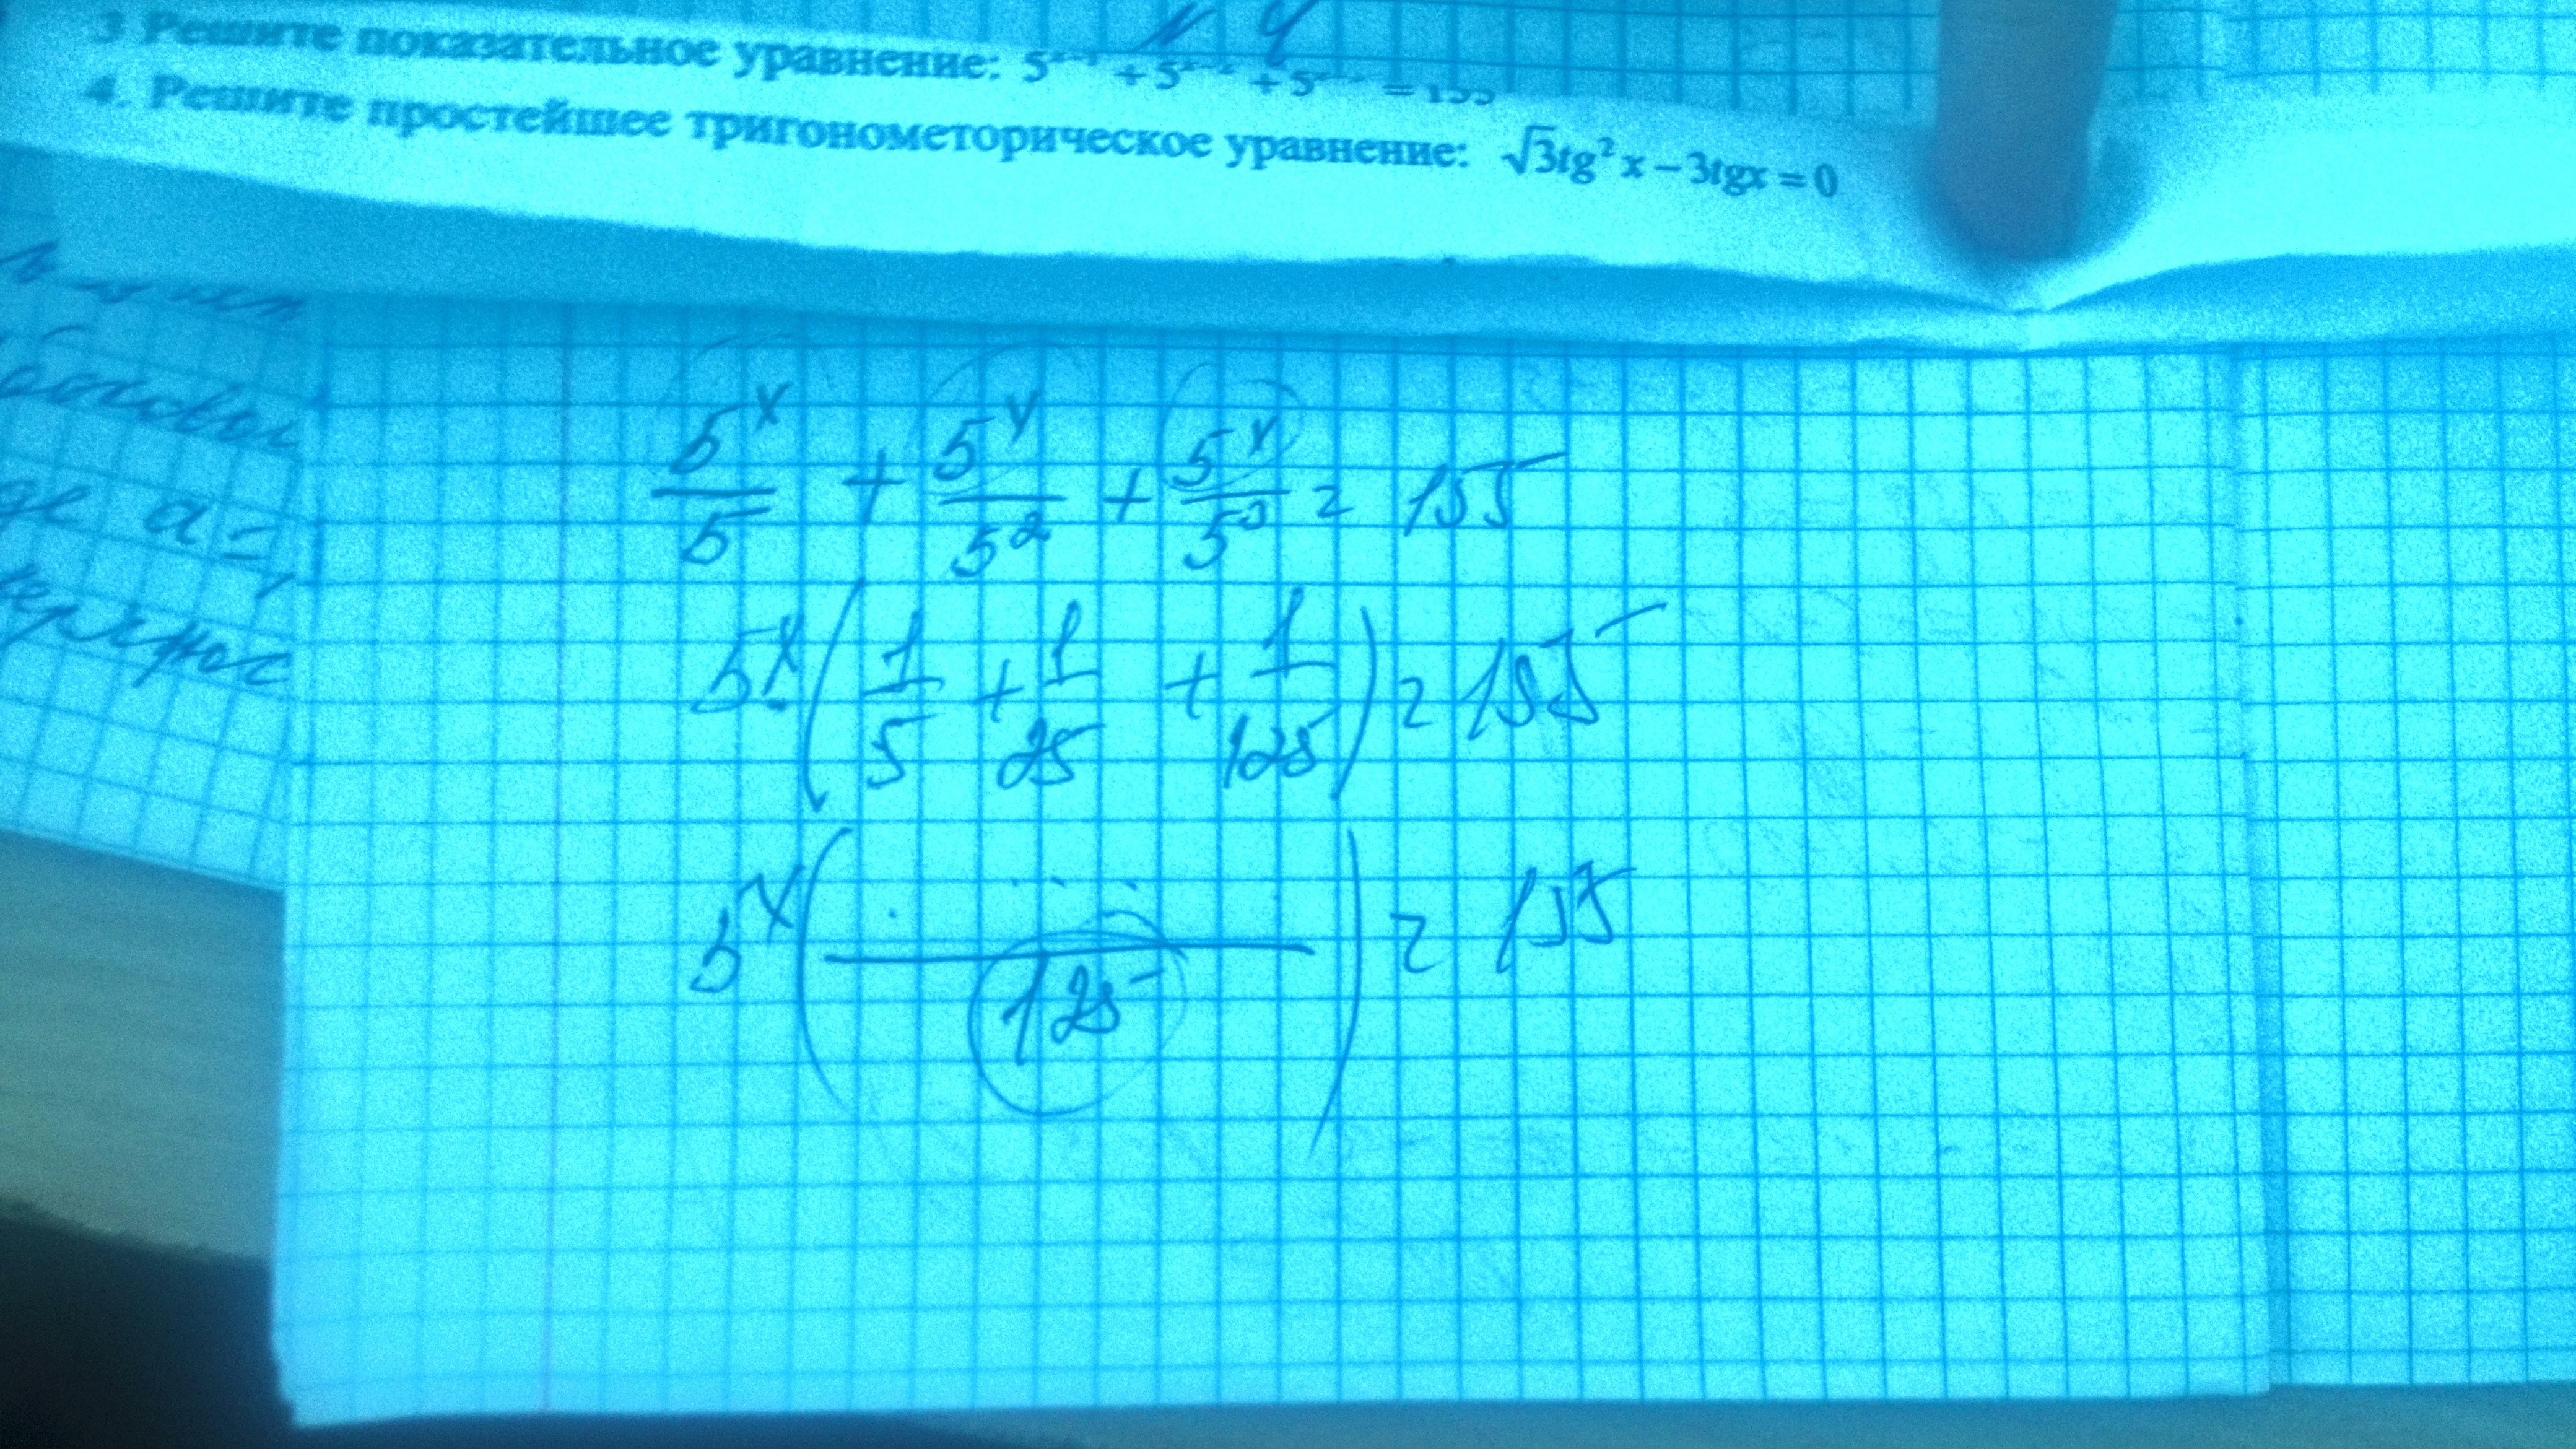 N 4
3 Решите показательное уравнение: 5 + 5 + 5 = 155
4. Решите простейшее тригонометорическое уравнение: √3tg²x − 3tgx = 0
где a =
5^x/5 + 5^x/5² + 5^x/5³ = 155
5^x (1/5 + 1/25 + 1/125) = 155
5^x (...../125) = 155